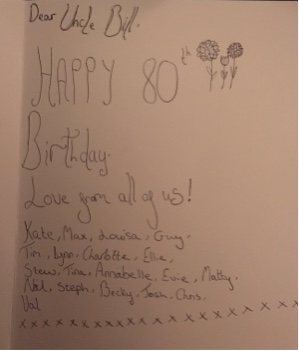 Dear Uncle Bill.
HAPPY 80th
Birthday.
Love from all of us!
Kate, Max, Louisa, Guy.
Tim, Lynn, Charlotte, Ellie,
Stew, Tina, Annabelle, Evie, Matty.
Neil, Steph, Becky, Josh, Chris.
Val
x x x x x x x x x x x x x x x x x x x x